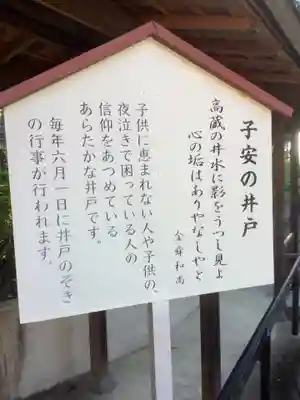 子安の井戸
高蔵の井水に影をうつし見よ
心の垢はありやなしやと
全舜和尚
子供に恵まれない人や子供の、
夜泣きで困っている人の
信仰をあつめている
あらたかな井戸です。
毎年六月一日に井戸のぞき
の行事が行われます。